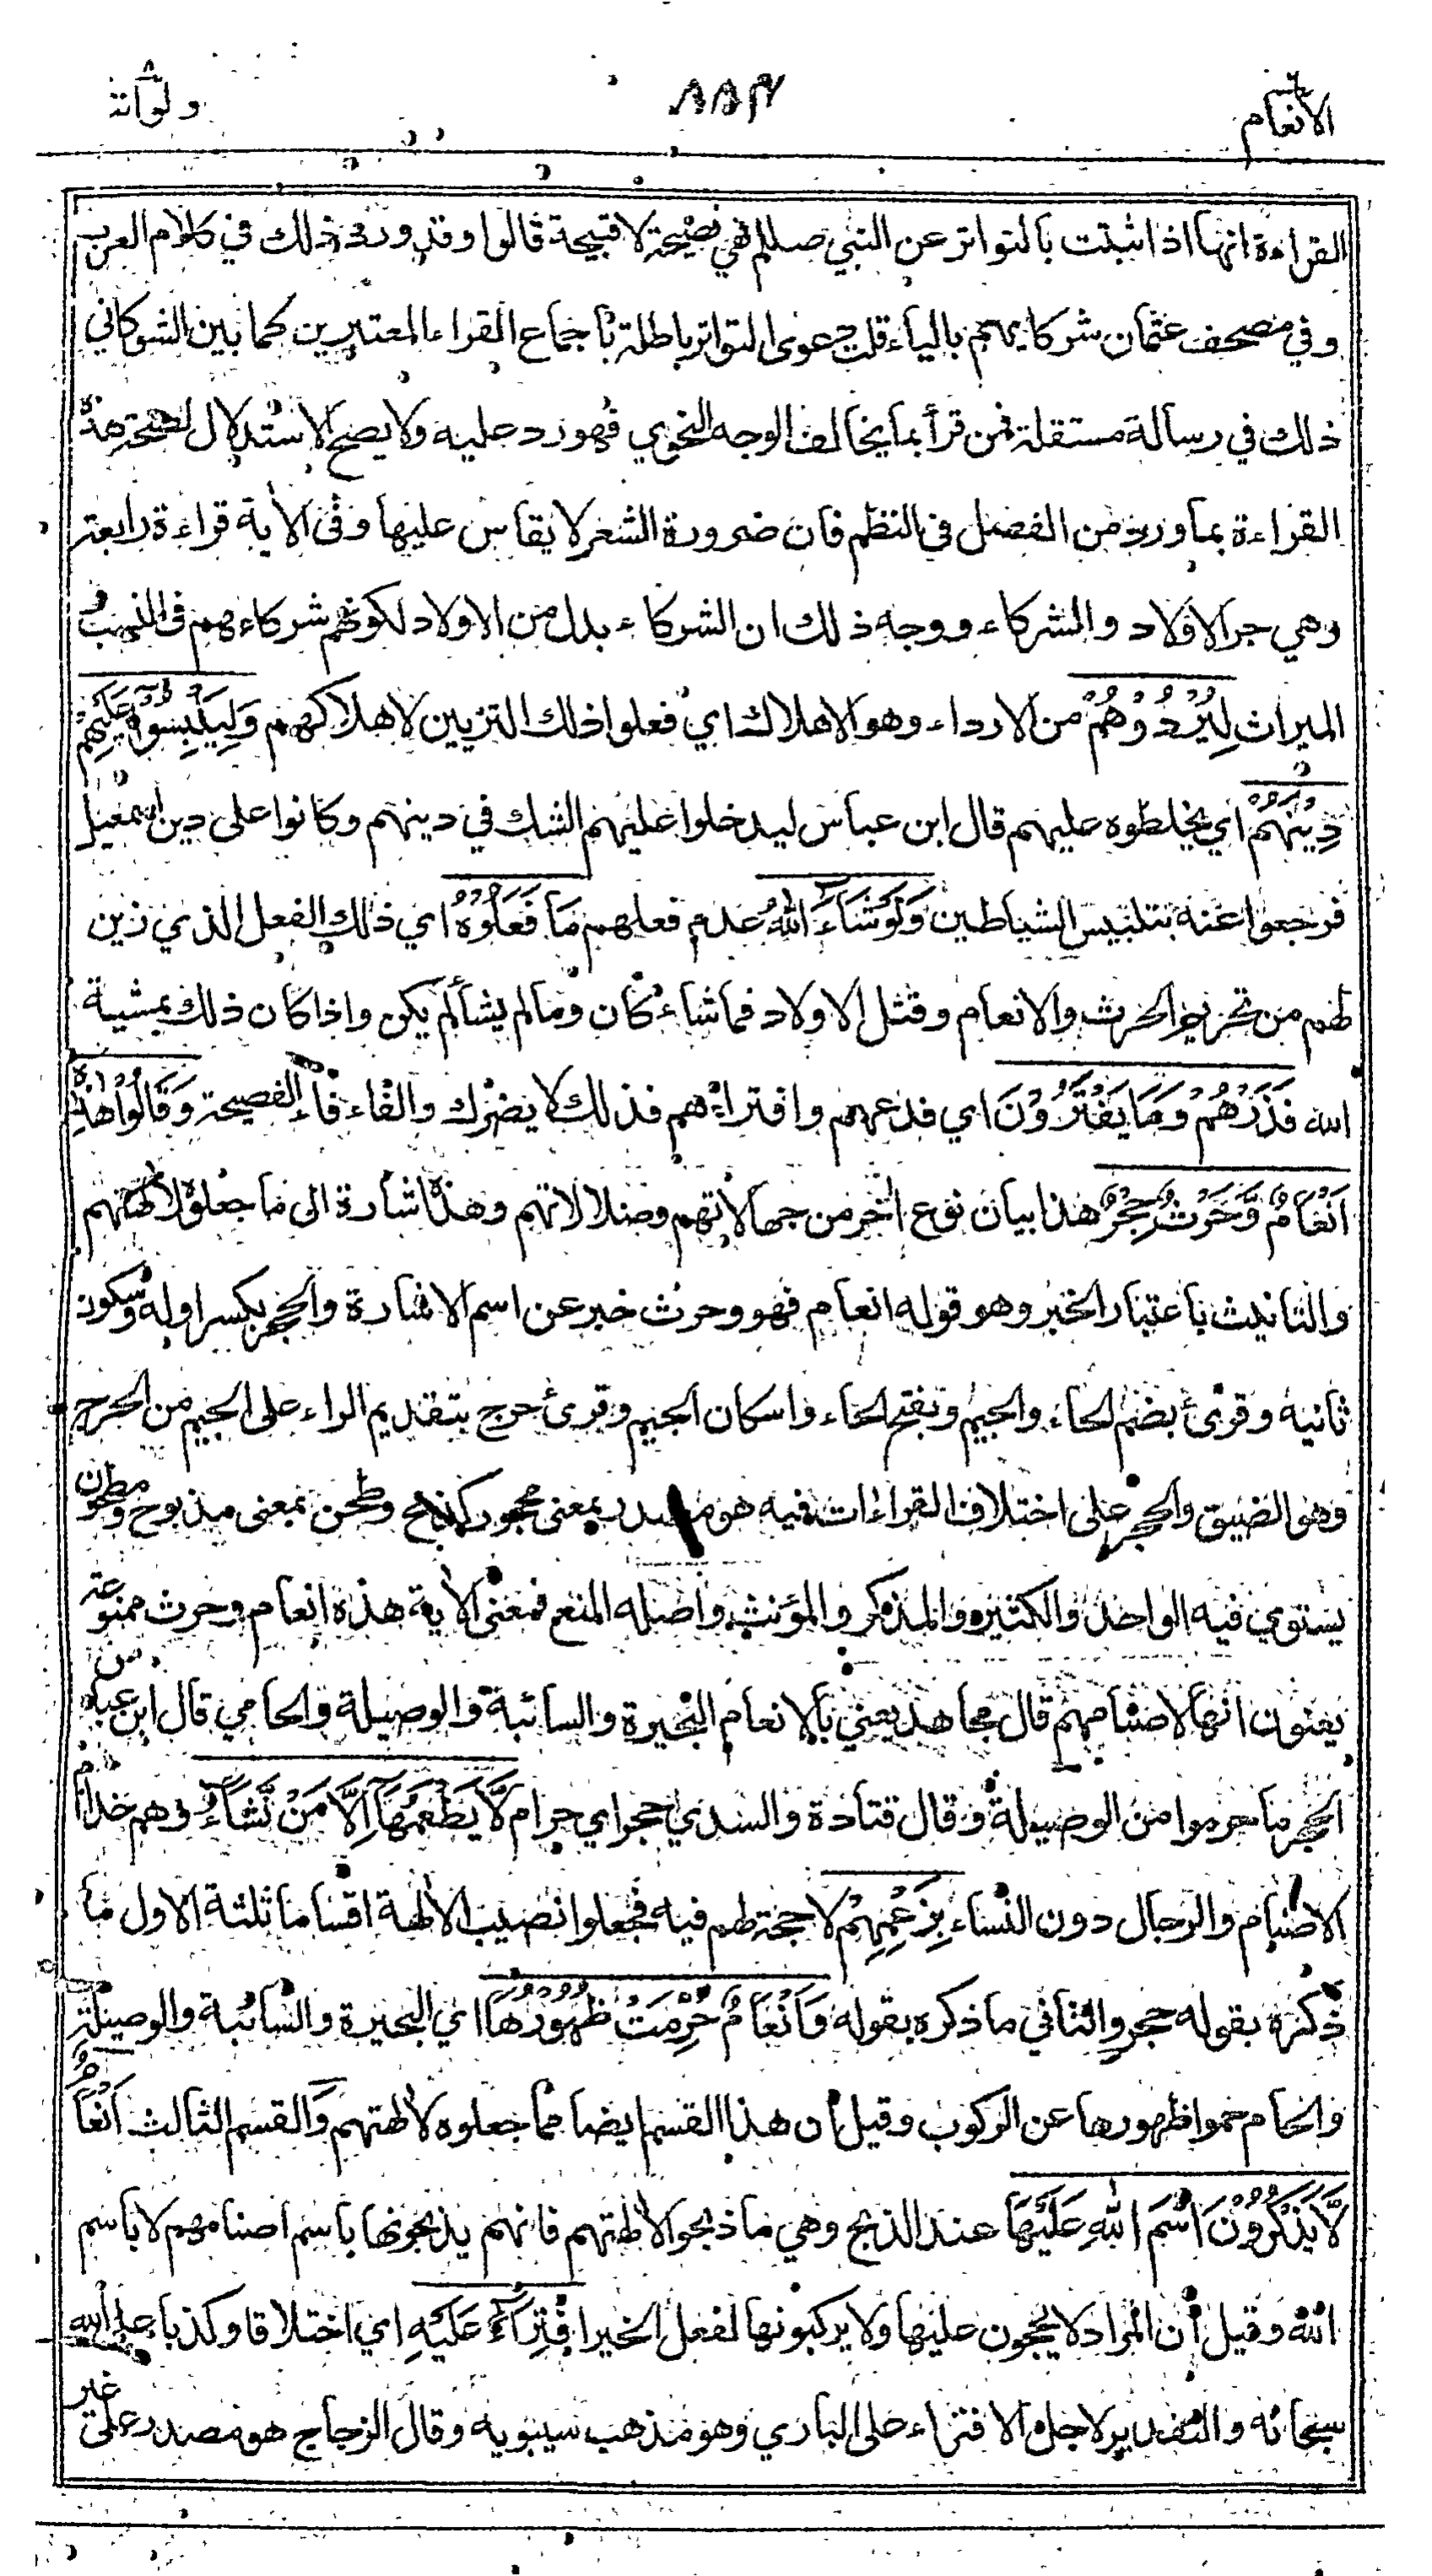 الانعام ٦
ولواننا ٨
القراءة انها اذا ثبتت بالتواتر عن النبي صللم فهي فصيحة لا قبيحة قالوا وقد ورد ذلك في كلام العرب
وفي مصحف عثمان شركايهم بالياء قلت دعوى التواتر باطلة باجماع القراء المعتبرين كما بين الشوكاني
ذلك في رسالة مستقلة فمن قرأ بما يخالف الوجه النحوي فهو رد عليه ولا يصح الاستدلال لصحة هذه
القراءة بما ورد من الفصل في النظم فان ضرورة الشعر لا يقاس عليها وفى الاية قراءة رابعة
وهي جر الاولاد والشركاء ووجه ذلك ان الشركاء بدل من الاولاد لكونهم شركاءهم فى النسب
الميراث لِيُرْدُوْهُمْ من الارداء وهو الاهلاك اي فعلوا ذلك التزيين لاهلاكهم وَلِيَلْبِسُوْا عَلَيْهِمْ
دِيْنَهُمْ اي يخلطوه عليهم قال ابن عباس ليدخلوا عليهم الشك في دينهم وكانوا على دين اسمعيل
فرجعوا عنه بتلبيس الشياطين وَلَوْ شَاءَ اللهُ عدم فعلهم مَا فَعَلُوْهُ اي ذلك الفعل الذي زين
لهم من تحريم الحرث والانعام وقتل الاولاد فما شاء كان وما لم يشأ لم يكن واذا كان ذلك بمشية
الله فَذَرْهُمْ وَمَا يَفْتَرُوْنَ اي فدعهم وافتراءهم فذلك لا يضرك والفاء فاء الفصيحة وَقَالُوْا هٰذِهٖ
اَنْعَامٌ وَّحَرْثٌ حِجْرٌ هذا بيان نوع اٰخر من جهالاتهم وضلالاتهم وهذه اشارة الى ما جعلوه لاٰلهتهم
والتانيث باعتبار الخبر وهو قوله انعام فهو وحرث خبر عن اسم الاشارة والحجر بكسر اوله وسكون
ثانيه وقرئ بضم الحاء والجيم وبفتح الحاء واسكان الجيم وقرئ حرج بتقديم الراء على الجيم من الحرج
وهو الضيق والحجر على اختلاف القراءات فيه هو مصدر بمعنى محجور كذبح وطحن بمعنى مذبوح ومطحون
يستوي فيه الواحد والكثير والمذكر والمؤنث واصله المنع فمعنى الاية هذه انعام وحرث ممنوعة
يعنون انها لاصنامهم قال مجاهد يعني بالانعام البحيرة والسائبة والوصيلة والحامي قال ابن عباس
الحجر ما حرموا من الوصيلة وقال قتادة والسدي حجر اي حرام لَّا يَطْعَمُهَا اِلَّا مَنْ نَّشَاءُ وهم خدام
الاصنام والرجال دون النساء بِزَعْمِهِمْ لا حجة لهم فيه فجعلوا نصيب الاٰلهة اقساما ثلثة الاول ما
ذكره بقوله حجر والثاني ما ذكره بقوله وَاَنْعَامٌ حُرِّمَتْ ظُهُوْرُهَا اي البحيرة والسائبة والوصيلة
والحام حموا ظهورها عن الركوب وقيل ان هذا القسم ايضا مما جعلوه لاٰلهتهم وَالقسم الثالث اَنْعَامٌ
لَّا يَذْكُرُوْنَ اسْمَ اللهِ عَلَيْهَا عند الذبح وهي ما ذبحوا لاٰلهتهم فانهم يذبحونها باسم اصنامهم لا باسم
الله وقيل ان المراد لا يحجون عليها ولا يركبونها لفعل الخير افْتِرَاءً عَلَيْهِ اي اختلاقا وكذبا على الله
سبحانه والتقدير لاجل الافتراء على الباري وهو مذهب سيبويه وقال الزجاج هو مصدر على غير